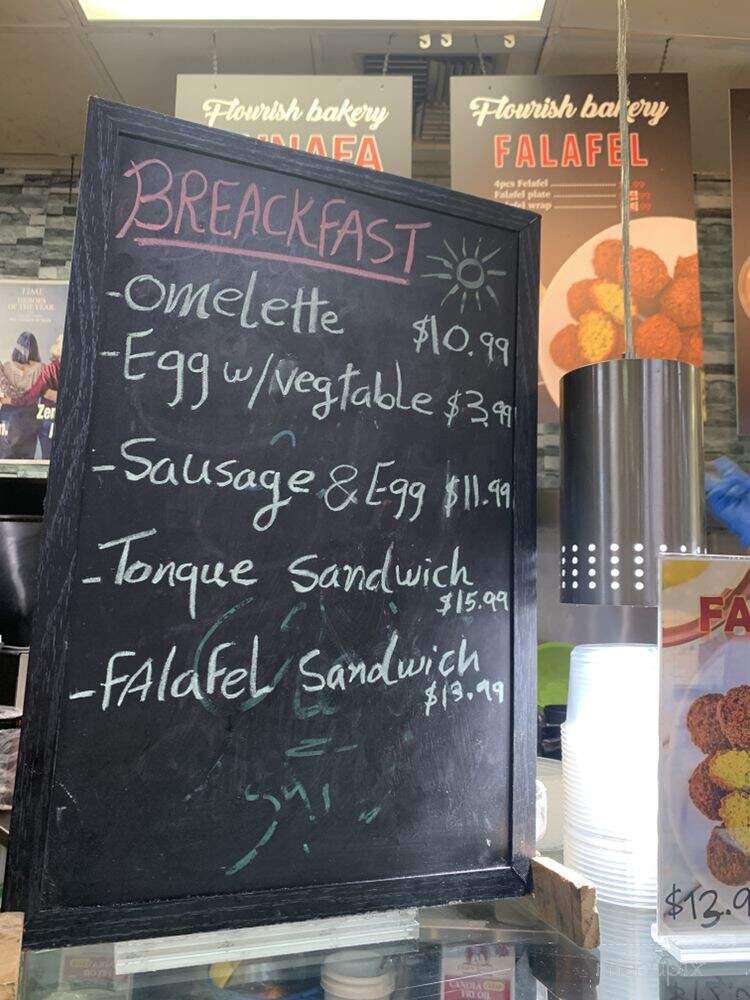 Flourish bakery
Flourish bakery
FALAFEL
4pcs Felafel
Falafel plate
Falafel wrap
BREACKFAST
-Omelette $10.99
-Egg w/vegtable $3.99
-Sausage & Egg $11.99
-Tonque Sandwich
$15.99
-FAlaFeL Sandwich
$13.99
TIME
HEROES
OF THE YEAR
FA
$13.9